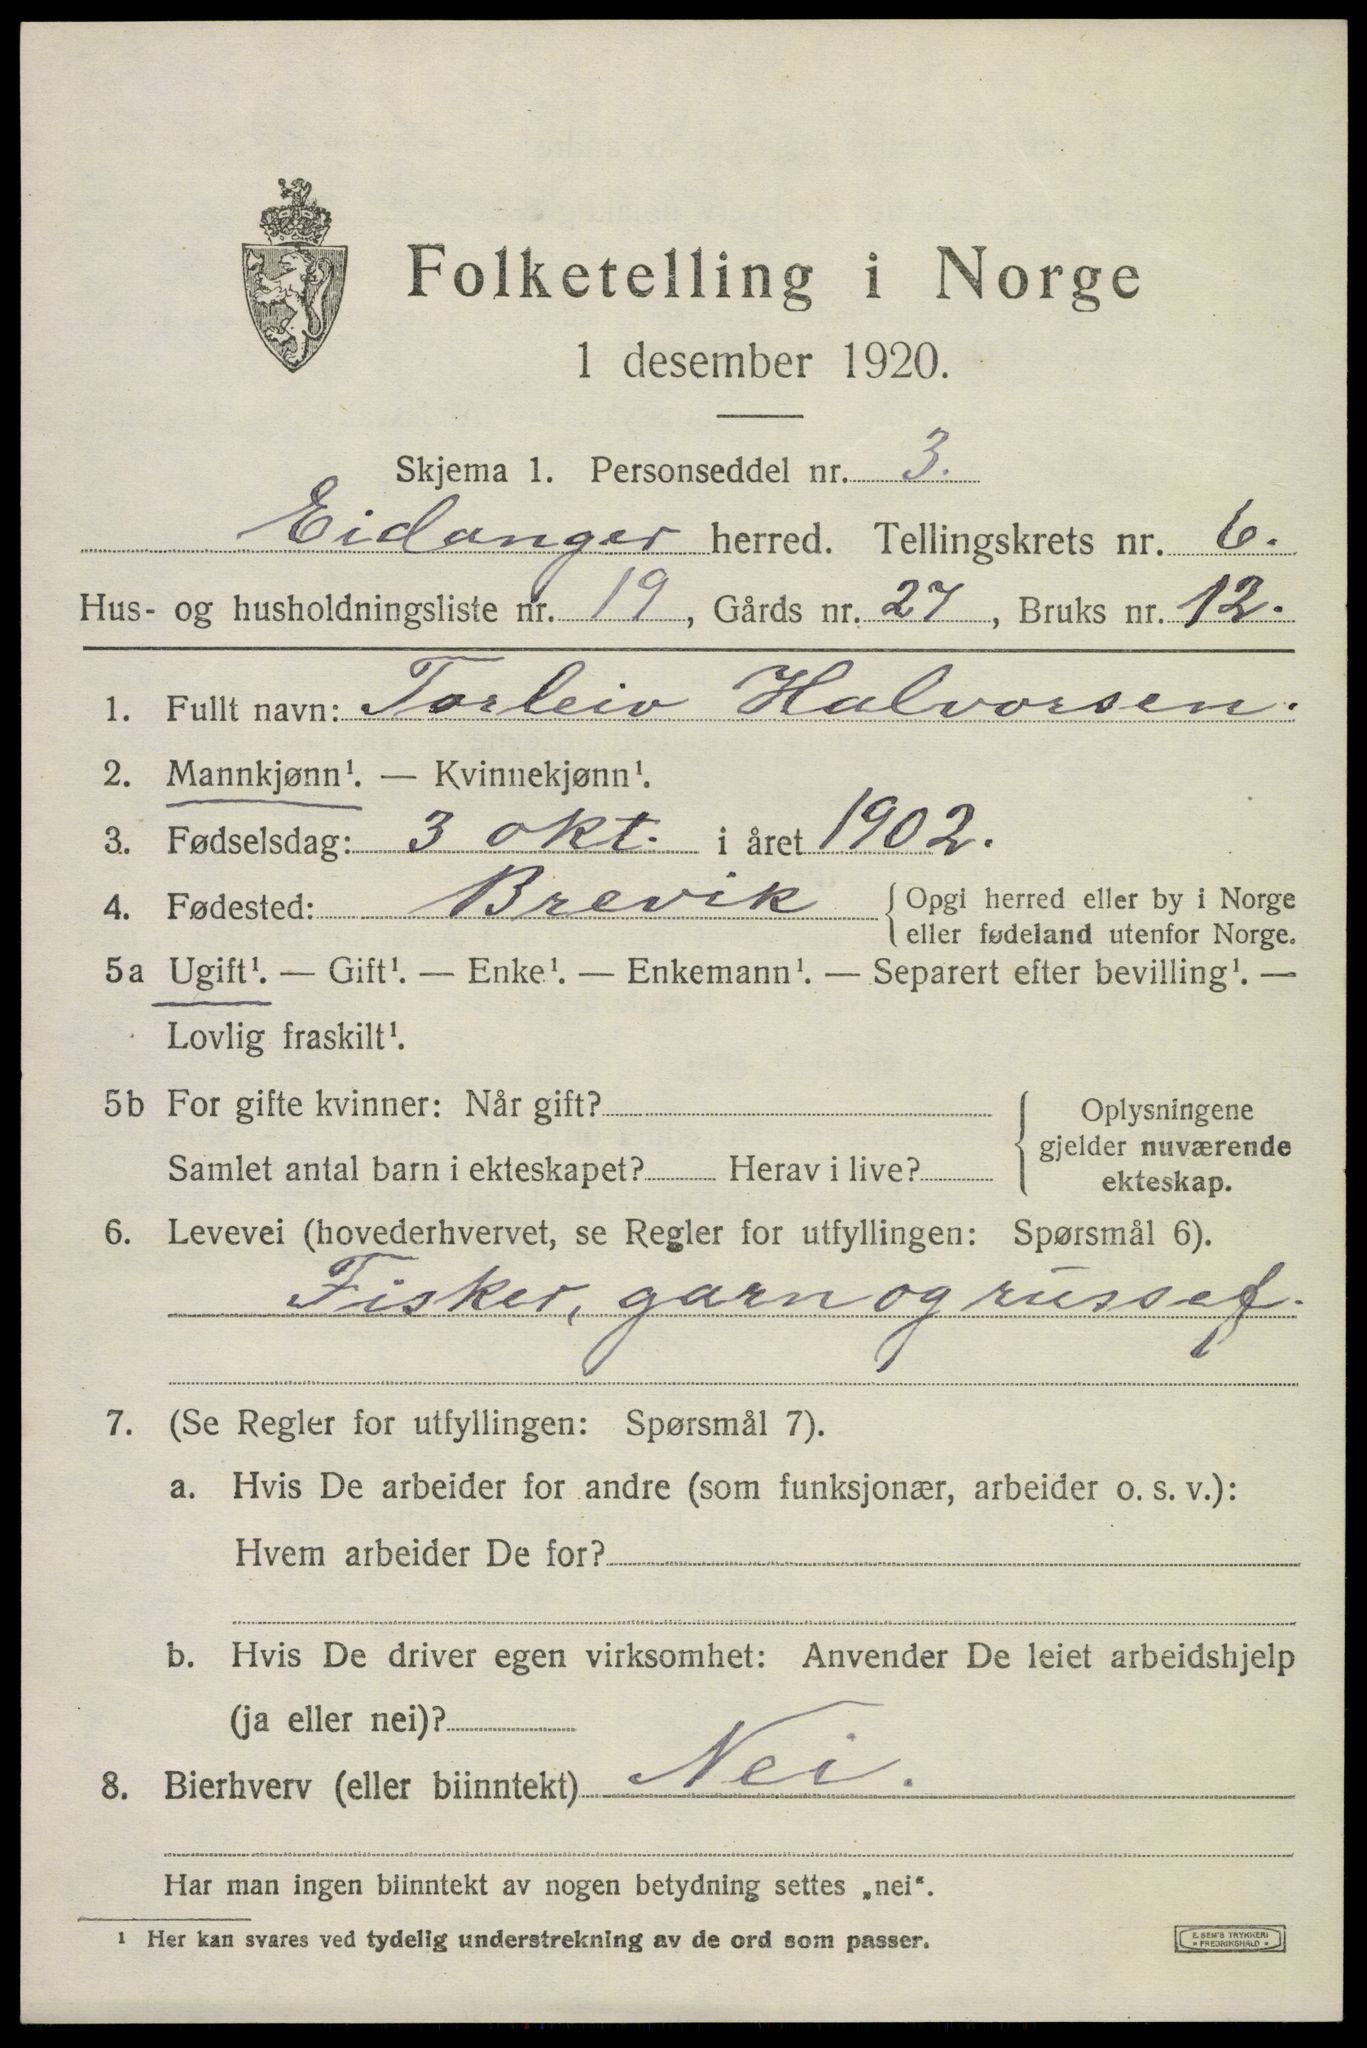 Folketelling i Norge
1 desember 1920.
Skjema 1. Personseddel nr. 3.
Eidanger herred. Tellingskrets nr. 6.
Hus- og husholdningsliste nr. 19, Gårds nr. 27, Bruks nr. 12.
1. Fullt navn: Torleiv Halvorsen.
2. Mannkjønn¹. — Kvinnekjønn¹.
3. Fødselsdag: 3 okt. i året 1902.
4. Fødested: Brevik { Opgi herred eller by i Norge
eller fødeland utenfor Norge.
5a Ugift¹. — Gift¹. — Enke¹. — Enkemann¹. — Separert efter bevilling¹. —
Lovlig fraskilt¹.
5b For gifte kvinner: Når gift?
Samlet antal barn i ekteskapet? Herav i live?
{ Oplysningene
gjelder nuværende
ekteskap.
6. Levevei (hovederhvervet, se Regler for utfyllingen: Spørsmål 6).
Fisker, garn og russef.
7. (Se Regler for utfyllingen: Spørsmål 7).
a. Hvis De arbeider for andre (som funksjonær, arbeider o. s. v.):
Hvem arbeider De for?
b. Hvis De driver egen virksomhet: Anvender De leiet arbeidshjelp
(ja eller nei)?
8. Bierhverv (eller biinntekt) Nei.
Har man ingen biinntekt av nogen betydning settes „nei“.
¹ Her kan svares ved tydelig understrekning av de ord som passer.
E. SEM'S TRYKKERI
• FREDRIKSHALD •